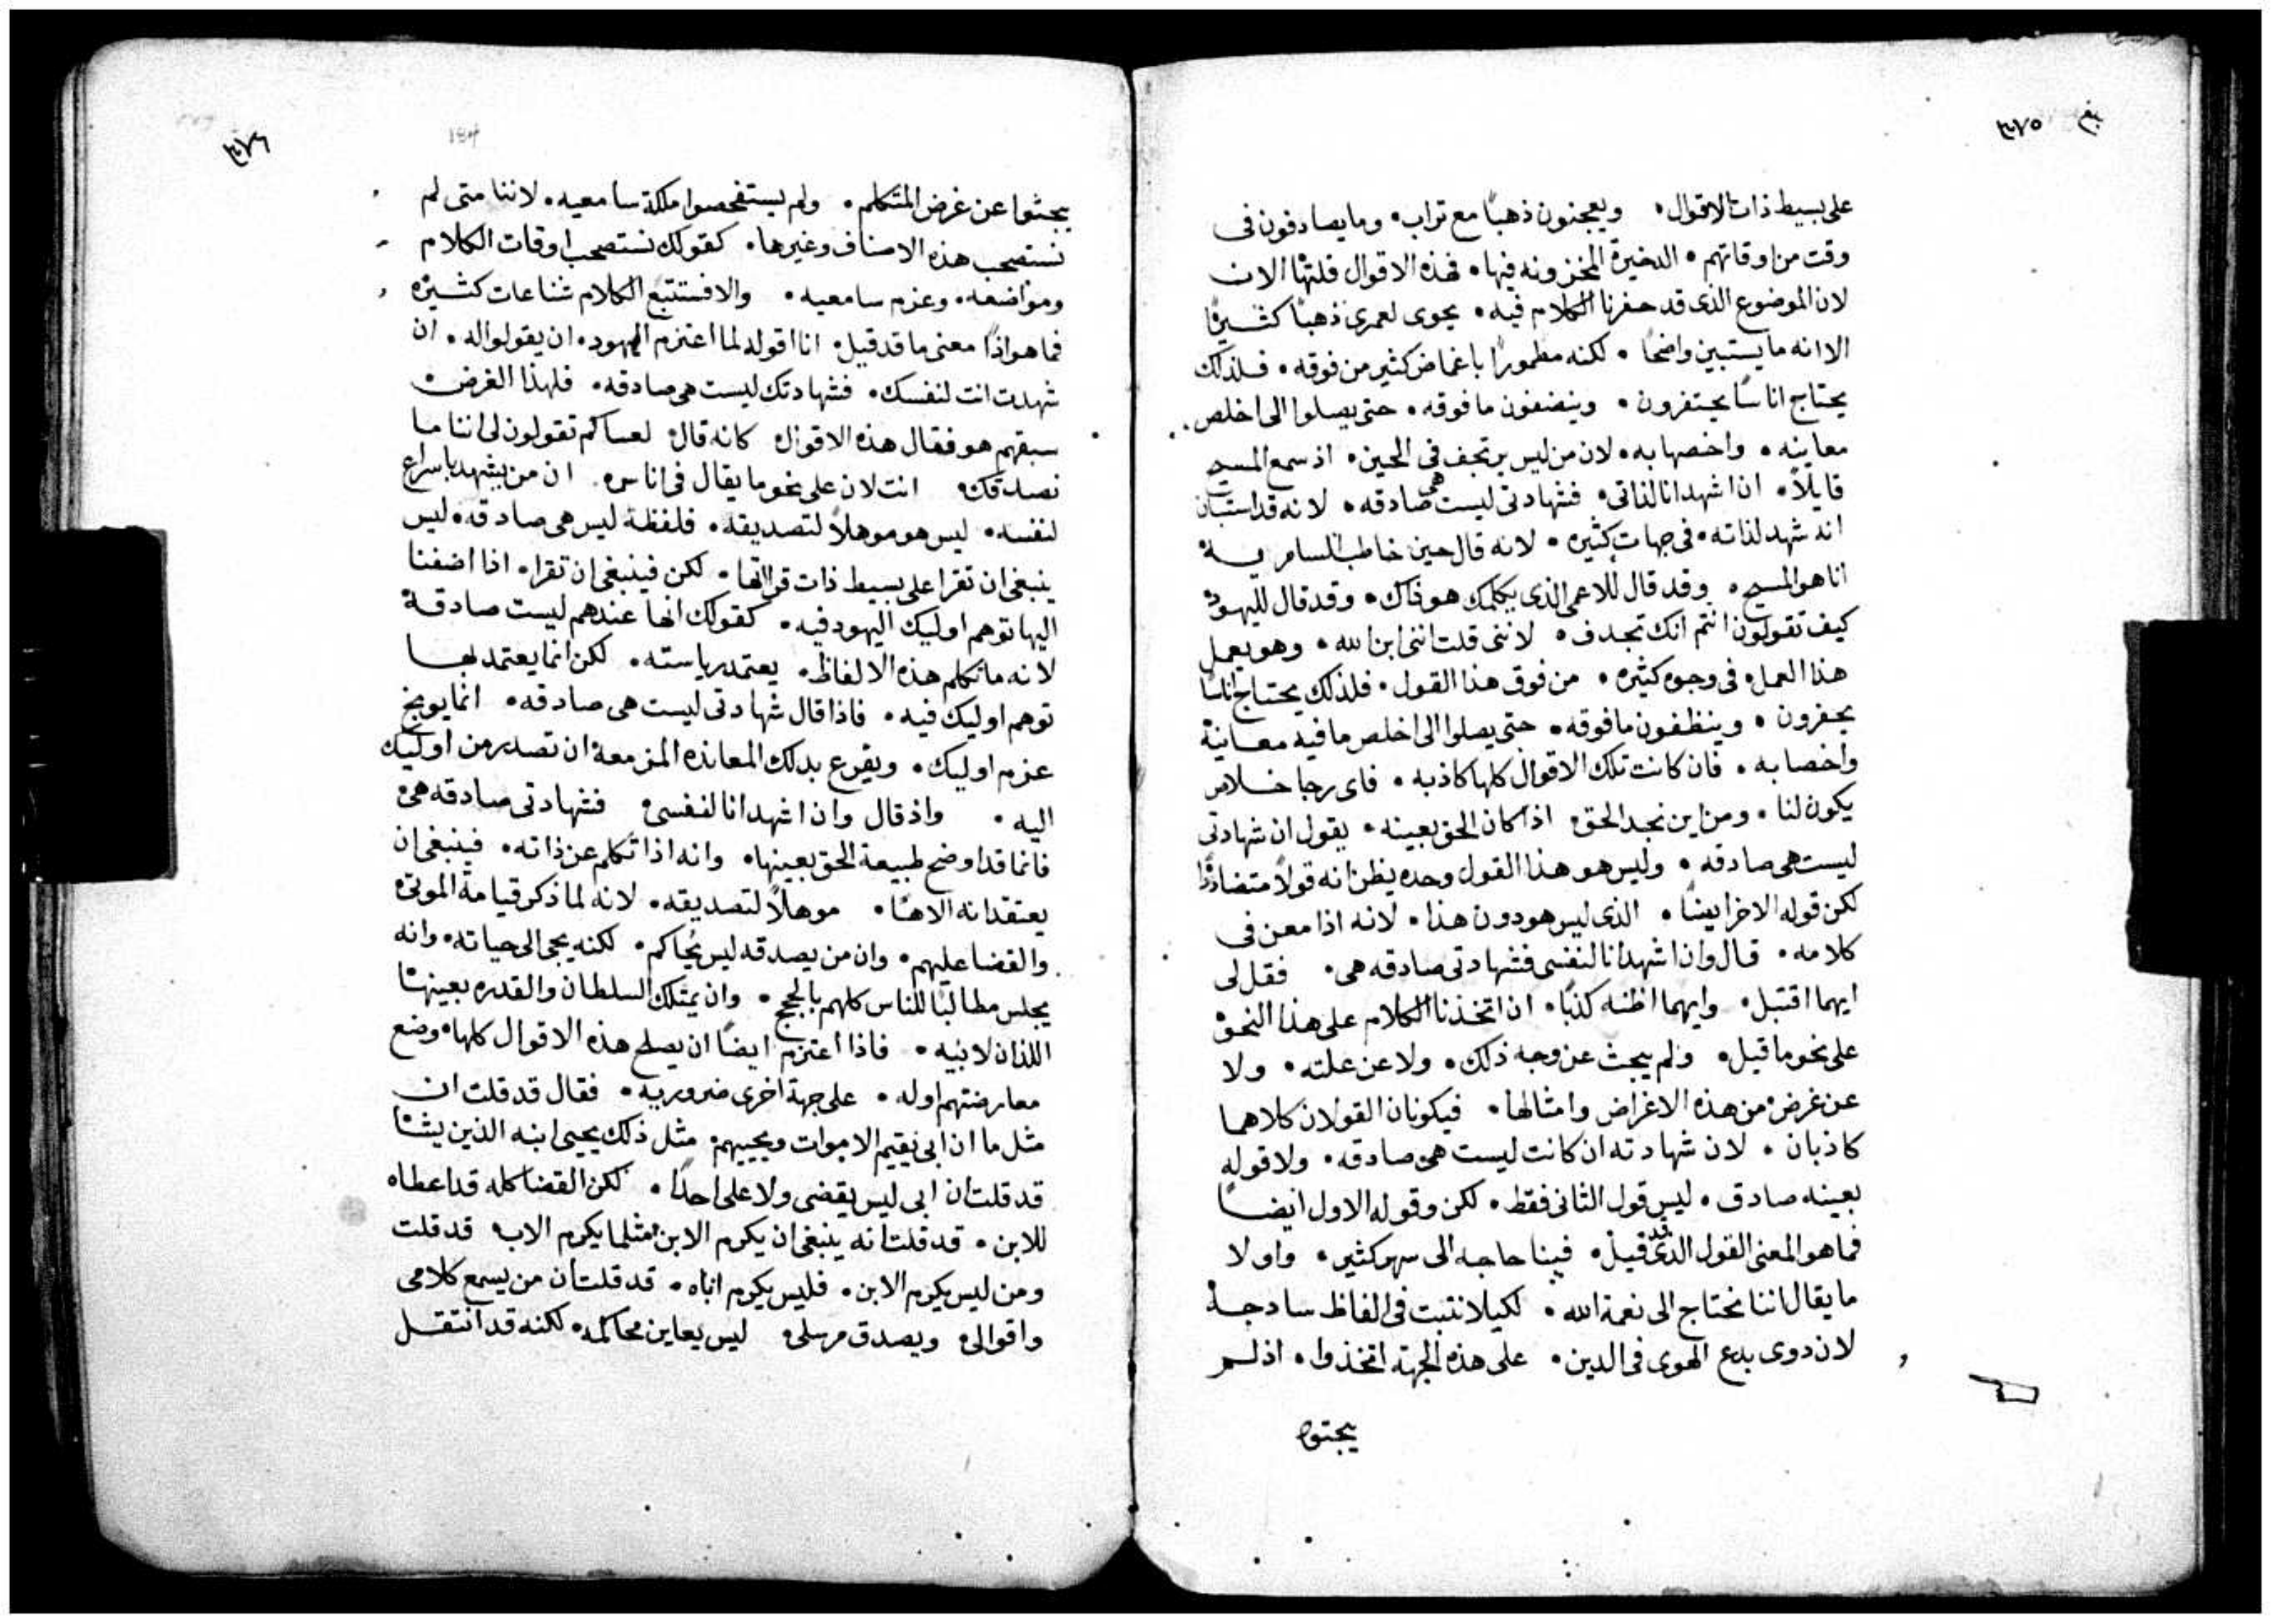 ٣٧٥
على بسيط ذات الاقوال• ويعجنون ذهبًا مع تراب• وما يصادفون فى
وقت من اوقاتهم• الدخيرة المخزونه فيها• فهذه الاقوال قلتها الان
لان الموضوع الذى قد حفرنا الكلام فيه• يحوى لعمرى ذهبًا كثيرًا
الا انه ما يستبين واضحًا• لكنه مطمورًا باغماض كثير من فوقه• فلذلك
يحتاج اناسًا يحتفرون• وينضفون ما فوقه• حتى يصلوا الى اخلص
معانيه• واخصها به• لان من ليس يرتجف فى الحين• اذ سمع المسيح
قايلاً• ان اشهد انا لذاتى• فشهادتى ليست هى صادقه• لانه قد استبان
انه شهد لذاته• فى جهات كثيره• لانه قال حين خاطب السامرية
انا هو المسيح• وقد قال للاعمى الذى يكلمك هو ذاك• وقد قال لليهود
كيف تقولون انتم انك تجدف• لاننى قلت اننى ابن الله• وهو يعمل
هذا العمل• فى وجوه كثيره• من فوق هذا القول• فلذلك يحتاج اناسًا
يحفرون• وينظفون ما فوقه• حتى يصلوا الى اخلص ما فيه معاينة
واخصا به• فان كانت تلك الاقوال كلها كاذبه• فاى رجا خلاص
يكون لنا• ومن اين نجد الحق• اذا كان الحق بعينه• يقول ان شهادتى
ليست هى صادقه• وليس هو هذا القول وحده يظن انه قولاً متضاددًا
لكن قوله الاخر ايضًا• الذى ليس هو دون هذا• لانه اذا معن فى
كلامه• قال وان اشهد انا لنفسى فشهادتى صادقه هى• فقل لى
ايهما اقتبل• وايهما اظنه كذبًا• ان اتخذنا الكلام على هذا النحو
على نحو ما قيل• ولم يبحث عن وجه ذلك• ولا عن علته• ولا
عن غرض من هذه الاغراض وامثالها• فيكونان القولان كلاهما
كاذبان• لان شهادته ان كانت ليست هى صادقه• ولا قوله
بعينه صادق• ليس قول الثانى فقط• لكن وقوله الاول ايضًا
فما هو المعنى القول الذى قد قيل• فبنا حاجه الى سهر كثير• واولا
ما يقال اننا نحتاج الى نعمة الله• لكيلا نتبت فى الفاظ سادجة
لان دوى بدع الهوى فى الدين• على هذه الجهة اتخذوا• اذ لم
يبحثوا
٣٧٦
184
يبحثوا عن غرض المتكلم• ولم يستفحصوا ملكة سامعيه• لاننا متى لم
نستصحب هذه الاصناف وغيرها• كقولك نستصحب اوقات الكلام
ومواضعه• وعزم سامعيه• والا فستتبع الكلام شناعات كثيره
فما هو اذًا معنى ما قد قيل• انا اقوله لما اعتزم اليهود• ان يقولوا له• ان
شهدت انت لنفسك• فشهادتك ليست هى صادقه• فلهذا الغرض
سبقهم هو فقال هذه الاقوال كانه قال لعساكم تقولون لى اننا ما
نصدقك• انت لان على نحو ما يقال فى اناس• ان من يشهد باسراع
لنفسه• ليس هو موهلاً لتصديقه• فلفظة ليس هى صادقه• ليس
ينبغى ان تقرا على بسيط ذات قراتها• لكن فينبغى ان تقرا• اذا اضفنا
اليها توهم اوليك اليهود فيه• كقولك انها عندهم ليست صادقة
لانه ما تكلم هذه الالفاظ• يعتمد رياسته• لكن انما يعتمد بها
توهم اوليك فيه• فاذا قال شهادتى ليست هى صادقه• انما يوبخ
عزم اوليك• ويقرع بدلك المعانده المزمعة ان تصدر من اوليك
اليه• واذ قال وان اشهد انا لنفسى فشهادتى صادقه هى
فانما قد اوضح طبيعة الحق بعينها• وانه اذا تكلم عن ذاته• فينبغى ان
يعتقد انه الاهًا• موهلاً لتصديقه• لانه لما ذكر قيامة الموتى
والقضا عليهم• وان من يصدقه ليس يُحاكم• لكنه يجى الى حياته• وانه
يجلس مطالبًا للناس كلهم بالحجج• وان يمتلك السلطان والقدره بعينها
اللذان لابيه• فاذا اعتزم ايضًا ان يصلح هذه الاقوال كلها• وضع
معارضتهم اوله• على جهة اخرى ضروريه• فقال قد قلت ان
مثل ما ان ابى يقيم الاموات ويحييهم• مثل ذلك يحيى ابنه الذين يشا
قد قلت ان ابى ليس يقضى ولا على احدًا• لكن القضا كله قد اعطاه
للابن• قد قلت انه ينبغى ان يكرم الابن مثلما يكرم الاب• قد قلت
ومن ليس يكرم الابن• فليس يكرم اباه• قد قلت ان من يسمع كلامى
واقوالى• ويصدق مرسلى• ليس يعاين محاكمه• لكنه قد انتقل